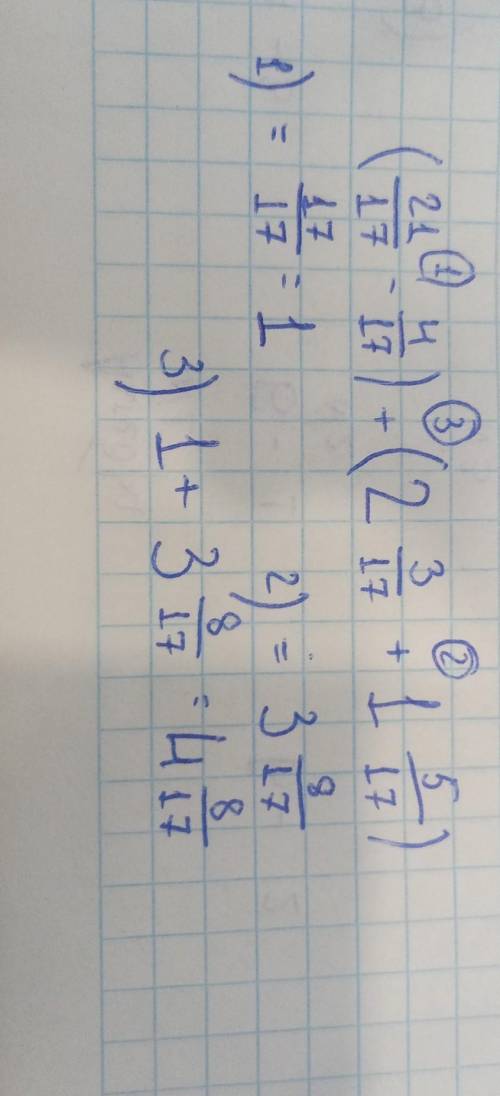 (21/17 ① - 4/17) ③ + (2 3/17 ② + 1 5/17)
1) = 17/17 = 1 2) = 3 8/17
3) 1 + 3 8/17 = 4 8/17